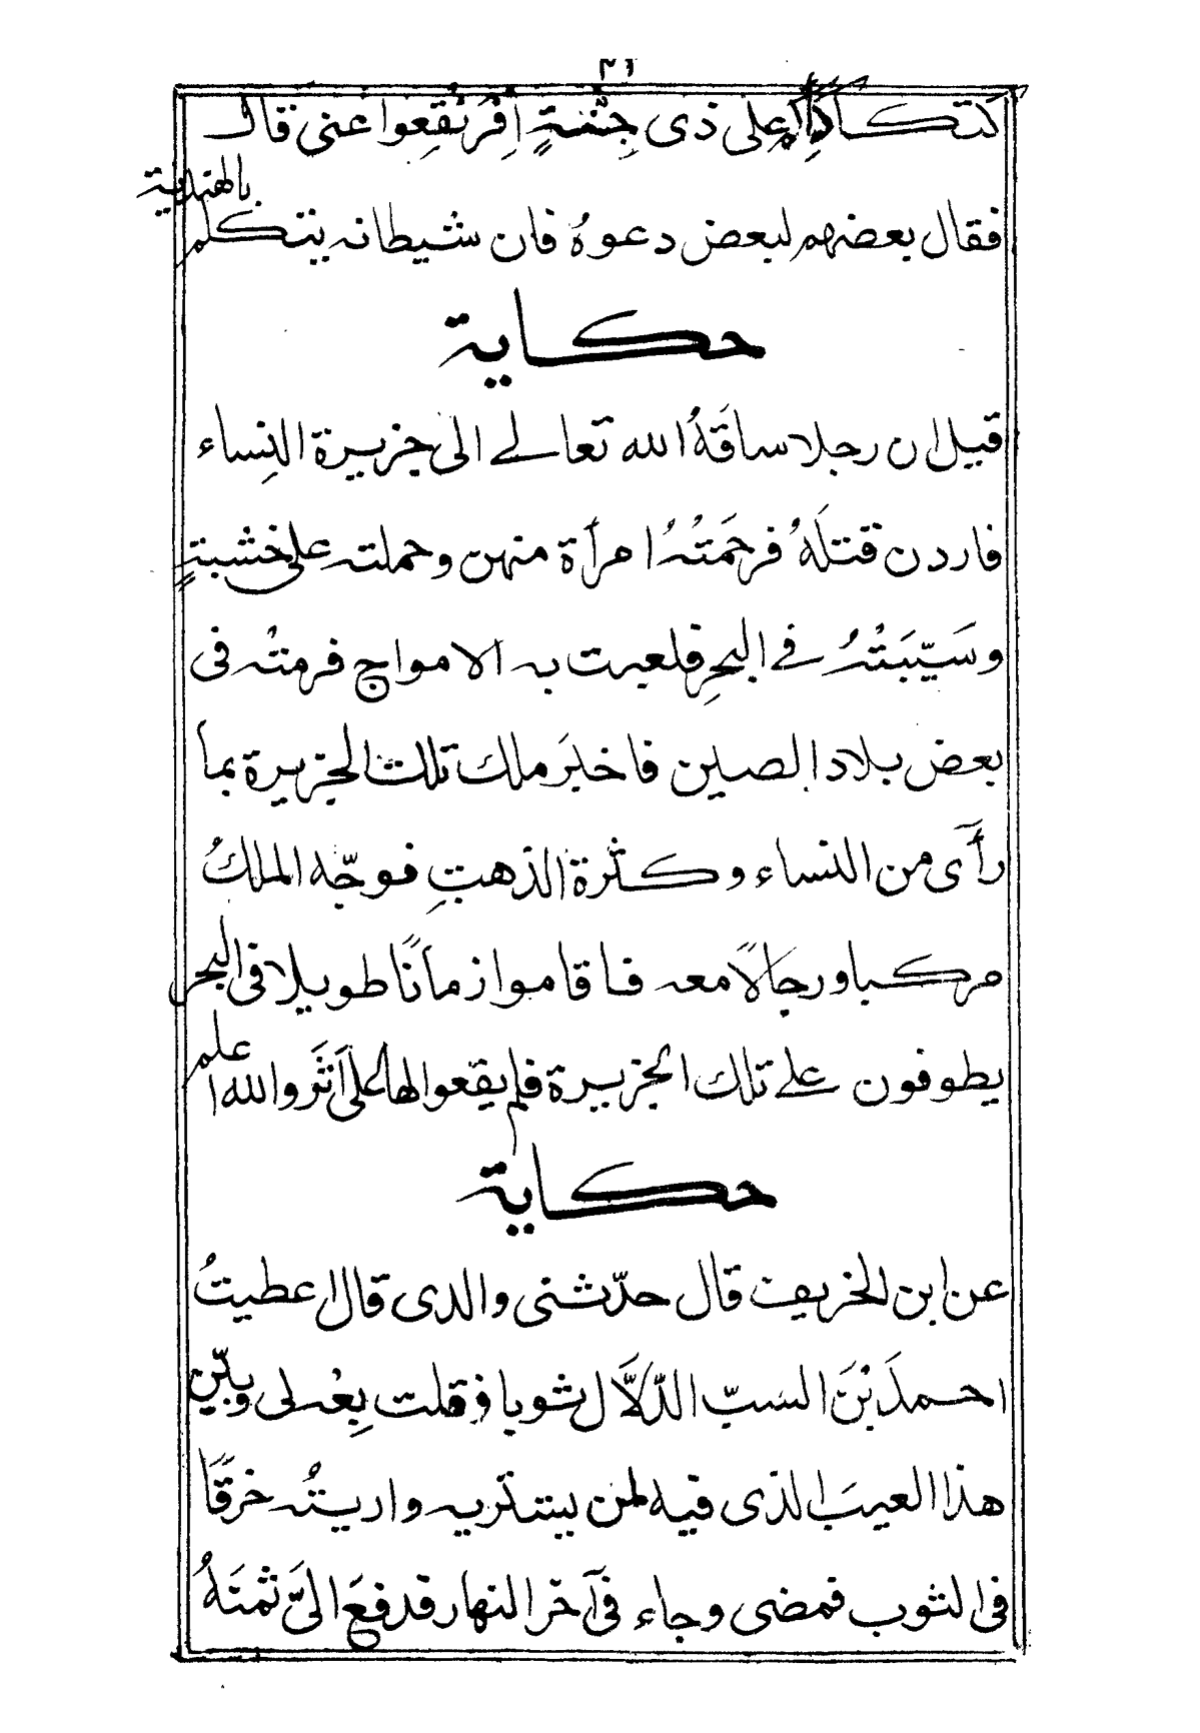 ٣٦
كتكأكأكم على ذى جِنّةٍ اِفْرَنْقِعوا عنى قال
فقال بعضهم لبعض دعوهُ فان شيطانه يتكلم
بالهندية
حكاية
قيل ان رجلا ساقَهُ الله تعالے الى جزيرة النِساء
فاردن قتلَهُ فرحَمَتْهُ امرأة منهن وحملته على خشبةٍ
وسَيّبَتْهُ فے البحرِ فلعبت به الامواج فرمته فى
بعض بلاد الصين فاخبَرَ ملك تلك الجزيرة بما
رأَى من النساء وكثرة الذهبِ فوجّه الملكُ
مركبا ورجالاً معه فاقاموا زمانًا طويلا فى البحر
يطوفون علے تلك الجزيرة فلم يقعوا لها على أثَر والله اعلم
حكاية
عن ابن الخريف قال حدّثنى والدى قال اعطيتُ
احمدَ بْنَ السبّ الدّلاَّل ثوبا وقلت بِعْه لى وبيّن
هذا العيبَ الذى فيه لمن يشتريه واريتُه خرقًا
فى الثوب فمضى وجاء فى آخر النهار فدفعَ الىَّ ثمنَهُ